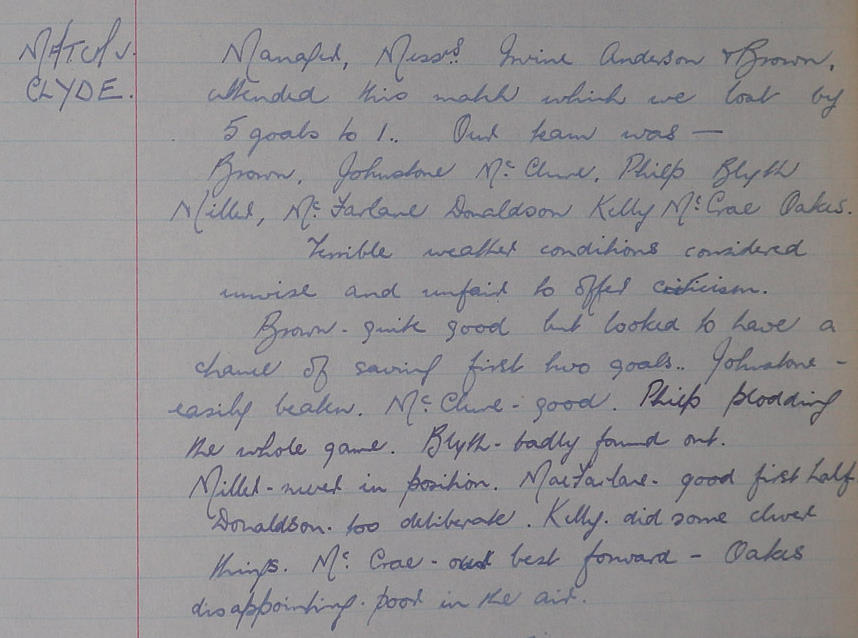 MATCH V.
CLYDE.
Manager, Messrs. Irvine Anderson & Brown,
attended this match which we lost by
5 goals to 1.. Our team was —
Brown, Johnstone Mc Clure, Philp Blyth
Miller, Mc Farlane Donaldson Kelly McCrae Oakes.
Terrible weather conditions considered
unwise and unfair to offer criticism.
Brown - quite good but looked to have a
chance of saving first two goals.. Johnstone -
easily beaten. Mc Clure - good. Philp plodding
the whole game. Blyth - badly found out.
Miller - never in position. MacFarlane - good first half
Donaldson - too deliberate. Kelly. did some clever
things. Mc Crae - our best forward - Oakes
disappointing - poor in the air.